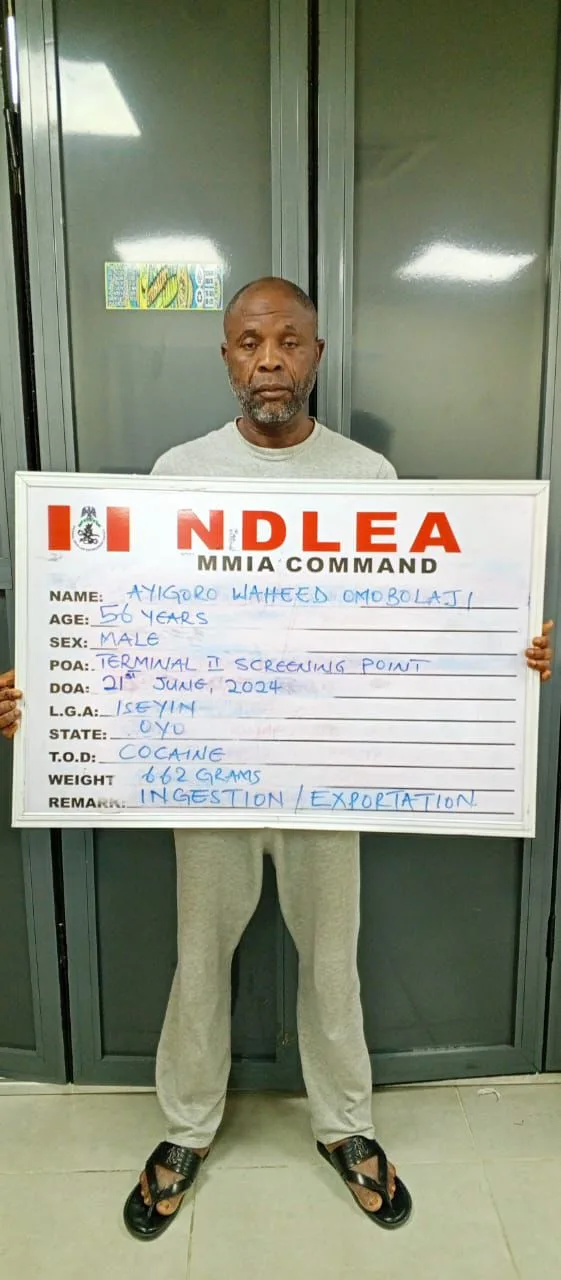 NDLEA
MMIA COMMAND
NAME: AYIGORO WAHEED OMOBOLAJI
AGE: 56 YEARS
SEX: MALE
POA: TERMINAL II SCREENING POINT
DOA: 21ST JUNE, 2024
L.G.A: ISEYIN
STATE: OYO
T.O.D: COCAINE
WEIGHT 662 GRAMS
REMARK: INGESTION / EXPORTATION